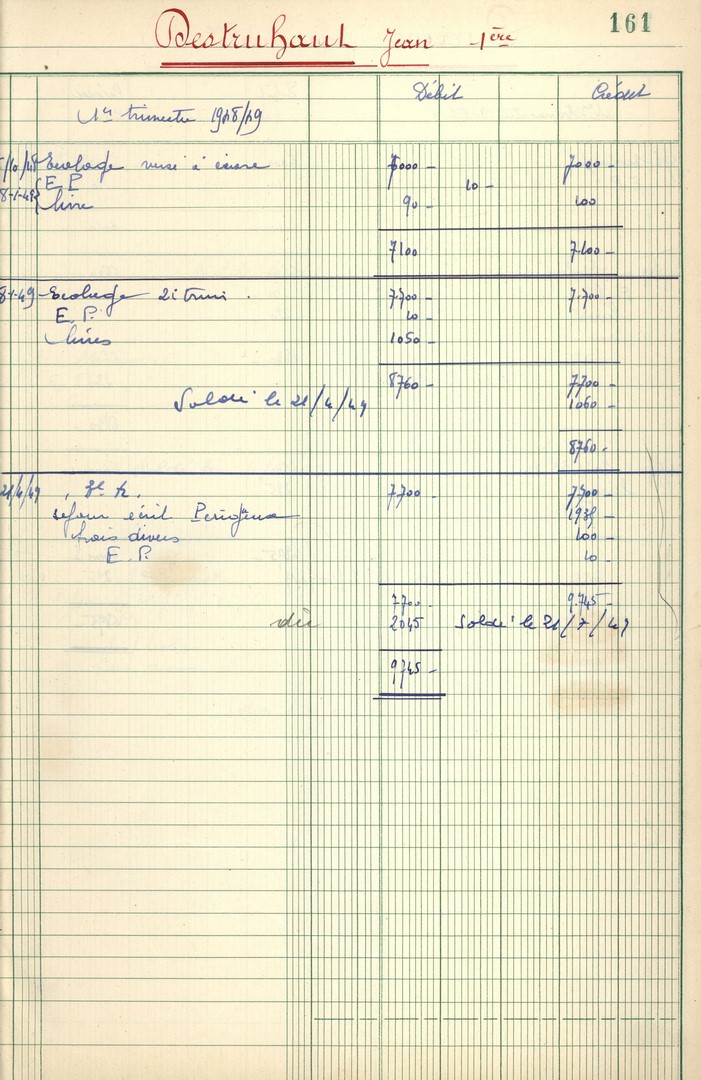 161
Destruhaut Jean 1ère
Débit Crédit
1er trimestre 1948/49
Ecolage versé à 7000 - 7000 -
E.P. 10 -
8-1-49 livre 90 - 100
7100 7.100 -
8-1-49 Ecolage 2è trim. 7.700 - 7.700 -
E.P. 10 -
livres 1050 -
8760 - 7.700 -
Soldé le 21/4/49 1060 -
8760 -
21/4/49 7.700 - 7.700 -
séjour
frais divers 100 -
E.P. 10 -
7.700 - 9.745 -
dû 2045 Soldé le 21/7/49
9745 -